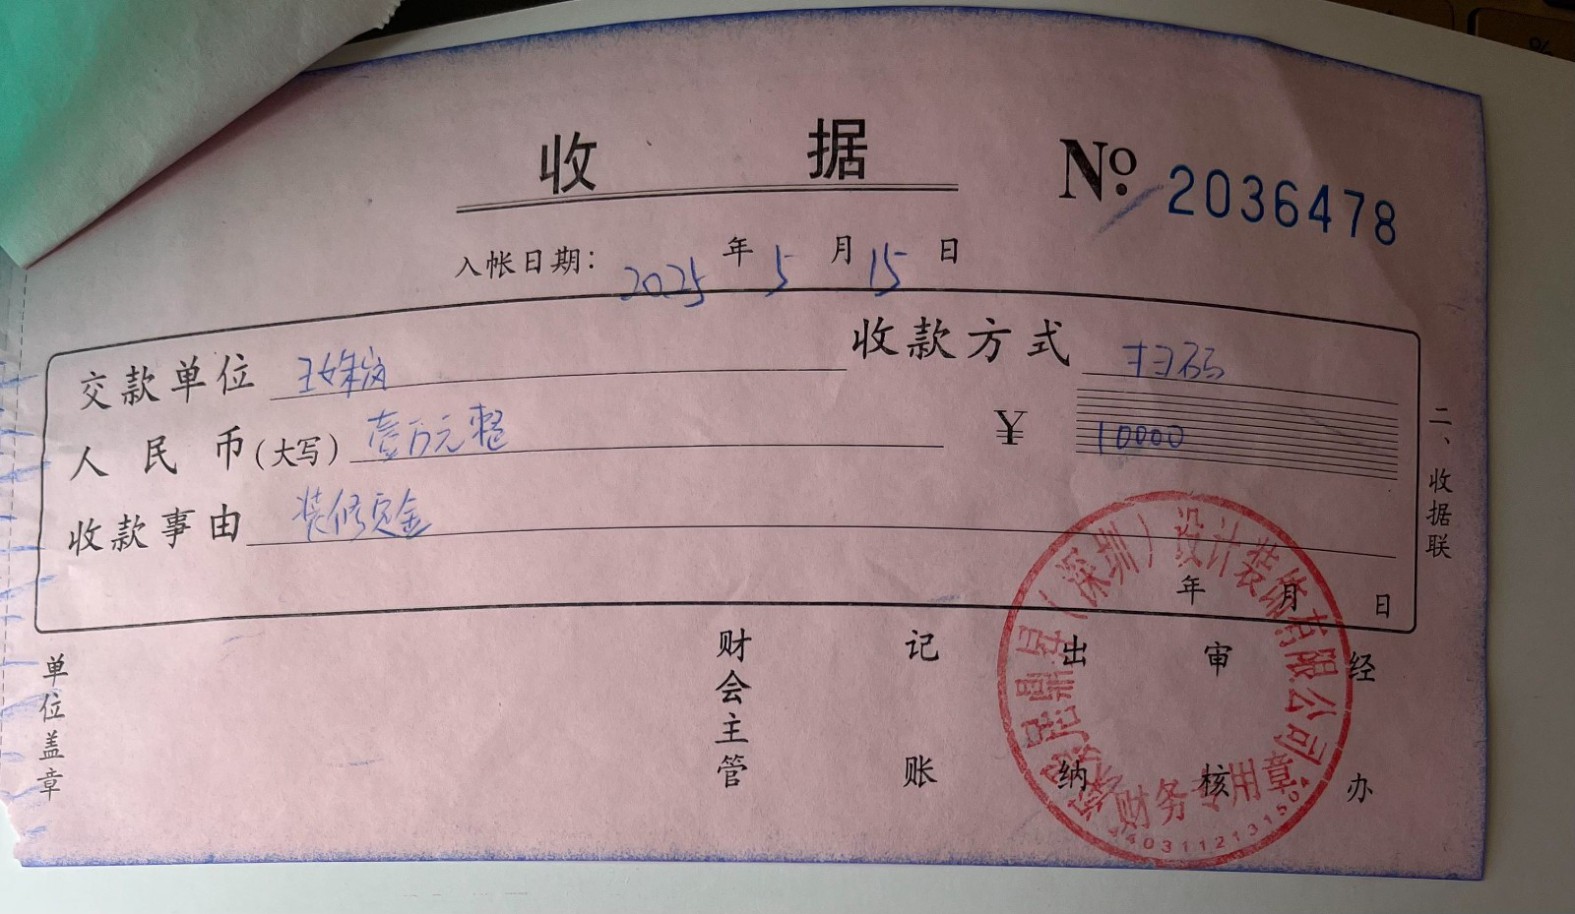 收 据
№ 2036478
入帐日期: 2025 年 5 月 15 日
交款单位 王姝岚 收款方式 扫码
人民币(大写) 壹万元整 ¥ 10000
收款事由 装修定金
年 月 日
二、收据联
单位盖章
财会主管
记账
出纳
审核
经办
(深圳)设计装饰有限公司
财务专用章